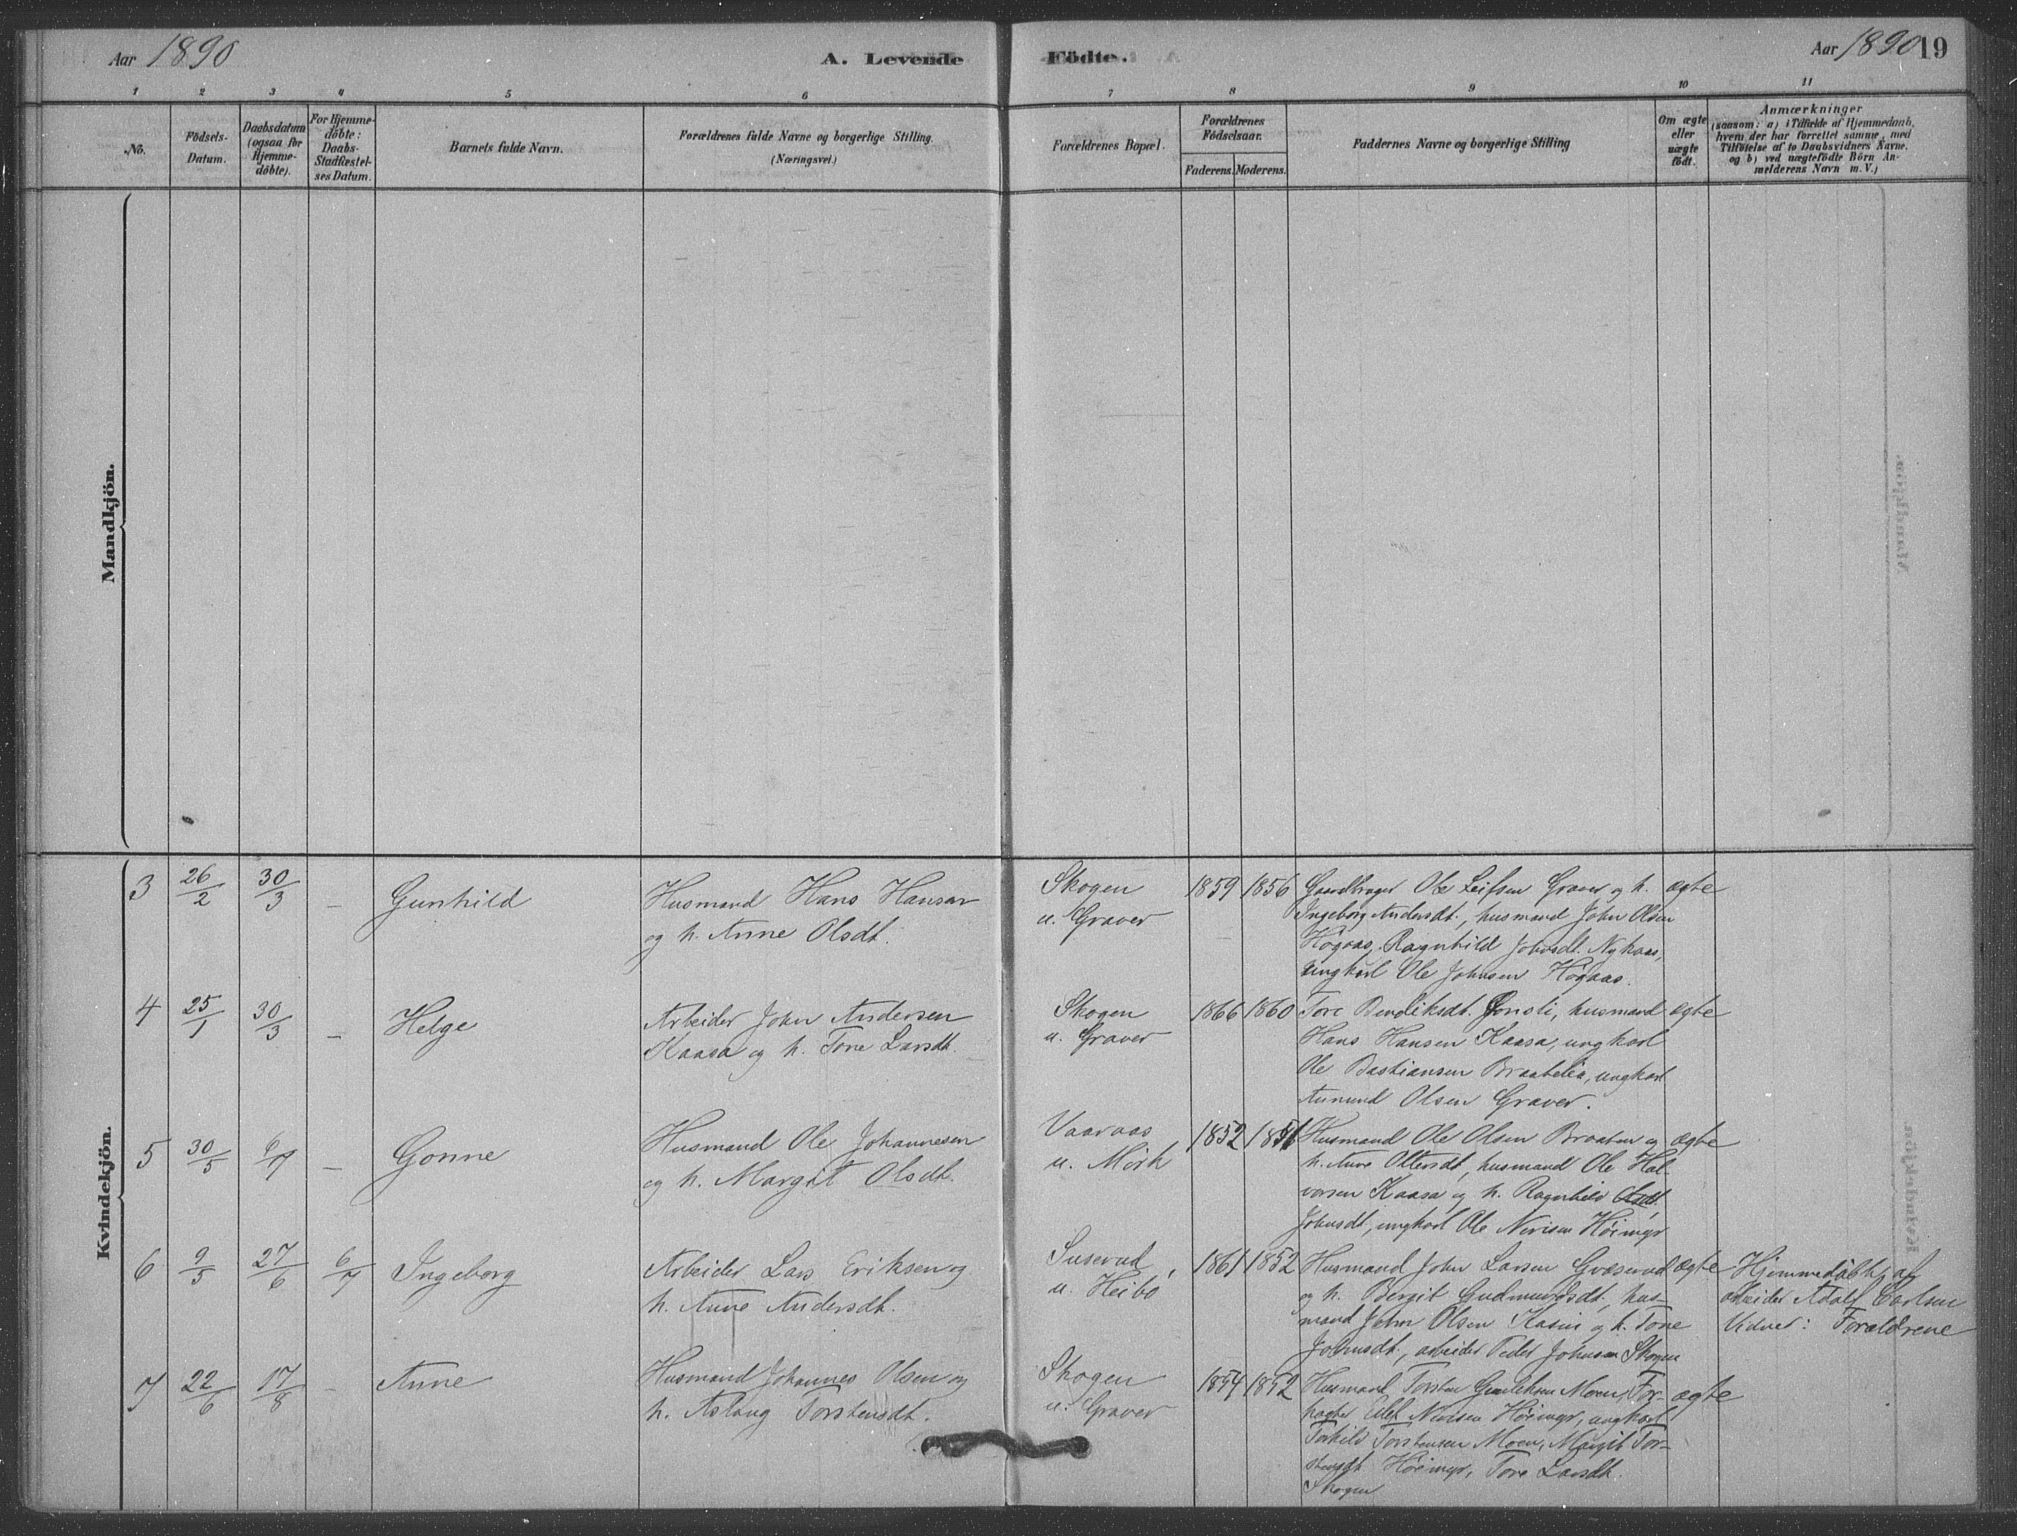 Aar 1890
A. Levende
Födte.
Aar 1890
19
1 2 3 4 5 6 7 8 9 10 11
No.
Födsels-
Datum.
Daabsdatum
(ogsaa for
Hjemme-
døbte).
For Hjemme-
døbte:
Daabs-
Stadfæstel-
ses Datum.
Barnets fulde Navn.
Forældrenes fulde Navne og borgerlige Stilling.
(Næringsvei.)
Forældrenes Bopæl.
Forældrenes
Födselsaar.
Faderens. Moderens.
Faddernes Navne og borgerlige Stilling
Om ægte
eller
uægte
født.
Anmærkninger
(saasom: a) i Tilfælde af Hjemmedaab,
hvem der har forrettet samme, med
Tilføielse af to Daabsvidners Navne.
og b) ved uægtefødte Börn An-
melderens Navn m. V.)
Mandkjön.
Kvindekjön.
3
26/2
30/3
–
Gunhild
Husmand Hans Hansen
og h. Anne Olsdt.
Skogen
u. Graver
1859
1856
Gaardbruger Ole Leifsen Graver og h.
Ingeborg Andersdt., husmand John Olsen
Högaas, Ragnhild Johnsdt. Nykaas,
ungkarl Ole Johnsen Högaas.
ægte
4
25/1
30/3
–
Helge
Arbeider John Andersen
Kaasa og h. Tone Larsdt.
Skogen
u. Graver
1866
1860
Tore Bendiksdt. husmand
Hans Hansen Kaasa, ungkarl
Ole Bastiansen Braatelia, ungkarl
Aumund Olsen Graver.
ægte
5
30/5
6/7
–
Gonne
Husmand Ole Johannesen
og h. Margit Olsdt.
Vaaraas
u. Mørk
1852
Husmand Ole Olsen Braaten og
h. Anne Ottersdt, husmand Ole Hal-
vorsen Kaasa og h. Ragnhild
Johnsdt, ungkarl Ole Nirisen Höimyr
ægte
6
9/5
27/6
6/7
Ingeborg
Arbeider Lars Eriksen og
h. Anne Andersdt.
Suserud
u. Heibö
1861
1852
Husmand John Larsen
og h. Bergit Gudmundsdt, hus-
mand John Olsen og h. Tone
Johnsdt, arbeider Peder Johnsen Skogen
ægte
Hjemmedöbt af
arbeider Adolf Carlsen
Vidner: Forældrene
7
22/6
17/8
–
Anne
Husmand Johannes Olsen og
h. Aslaug Torstensdt.
Skogen
u. Graver
1854
1852
Husmand Torsten Gunleiksen Moen, For-
pagter Nirisen Höimyr, ungkarl
Torkild Torstensen Moen, Margit Tor-
stensdt Höimyr, Tore Larsdt.
Skogen
ægte